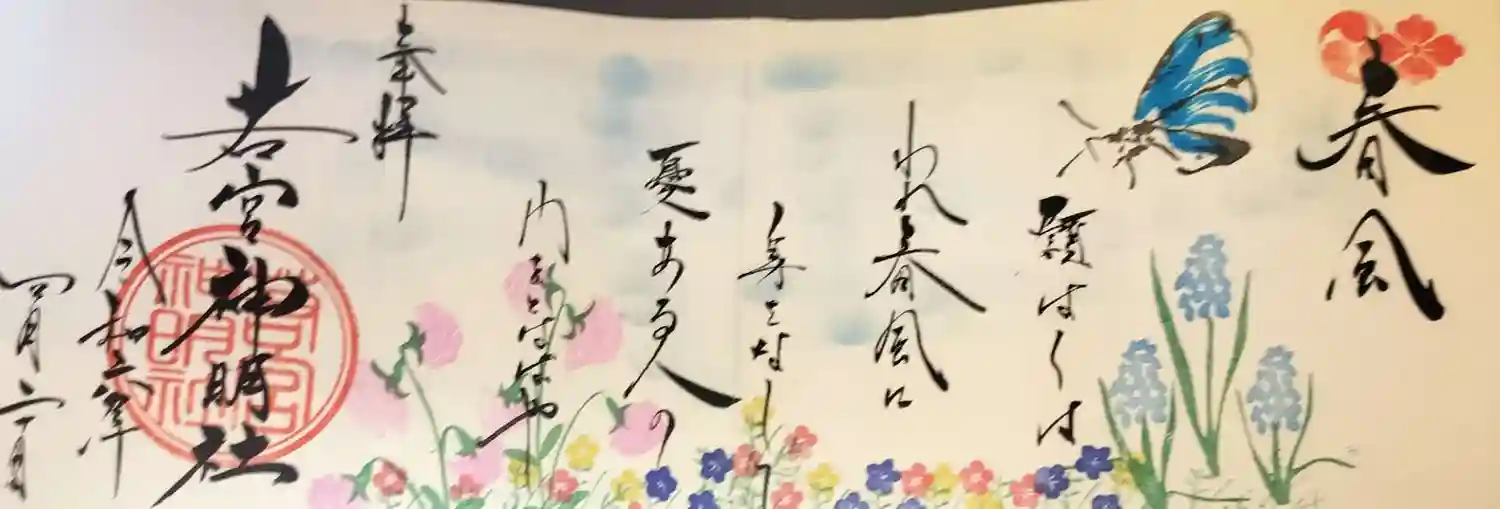 春風
願はくは
われ春風に
身をなして
憂ある人の
門をとはばや
奉拝
若宮神明社
若宮
神明社
令和六年
四月二十日